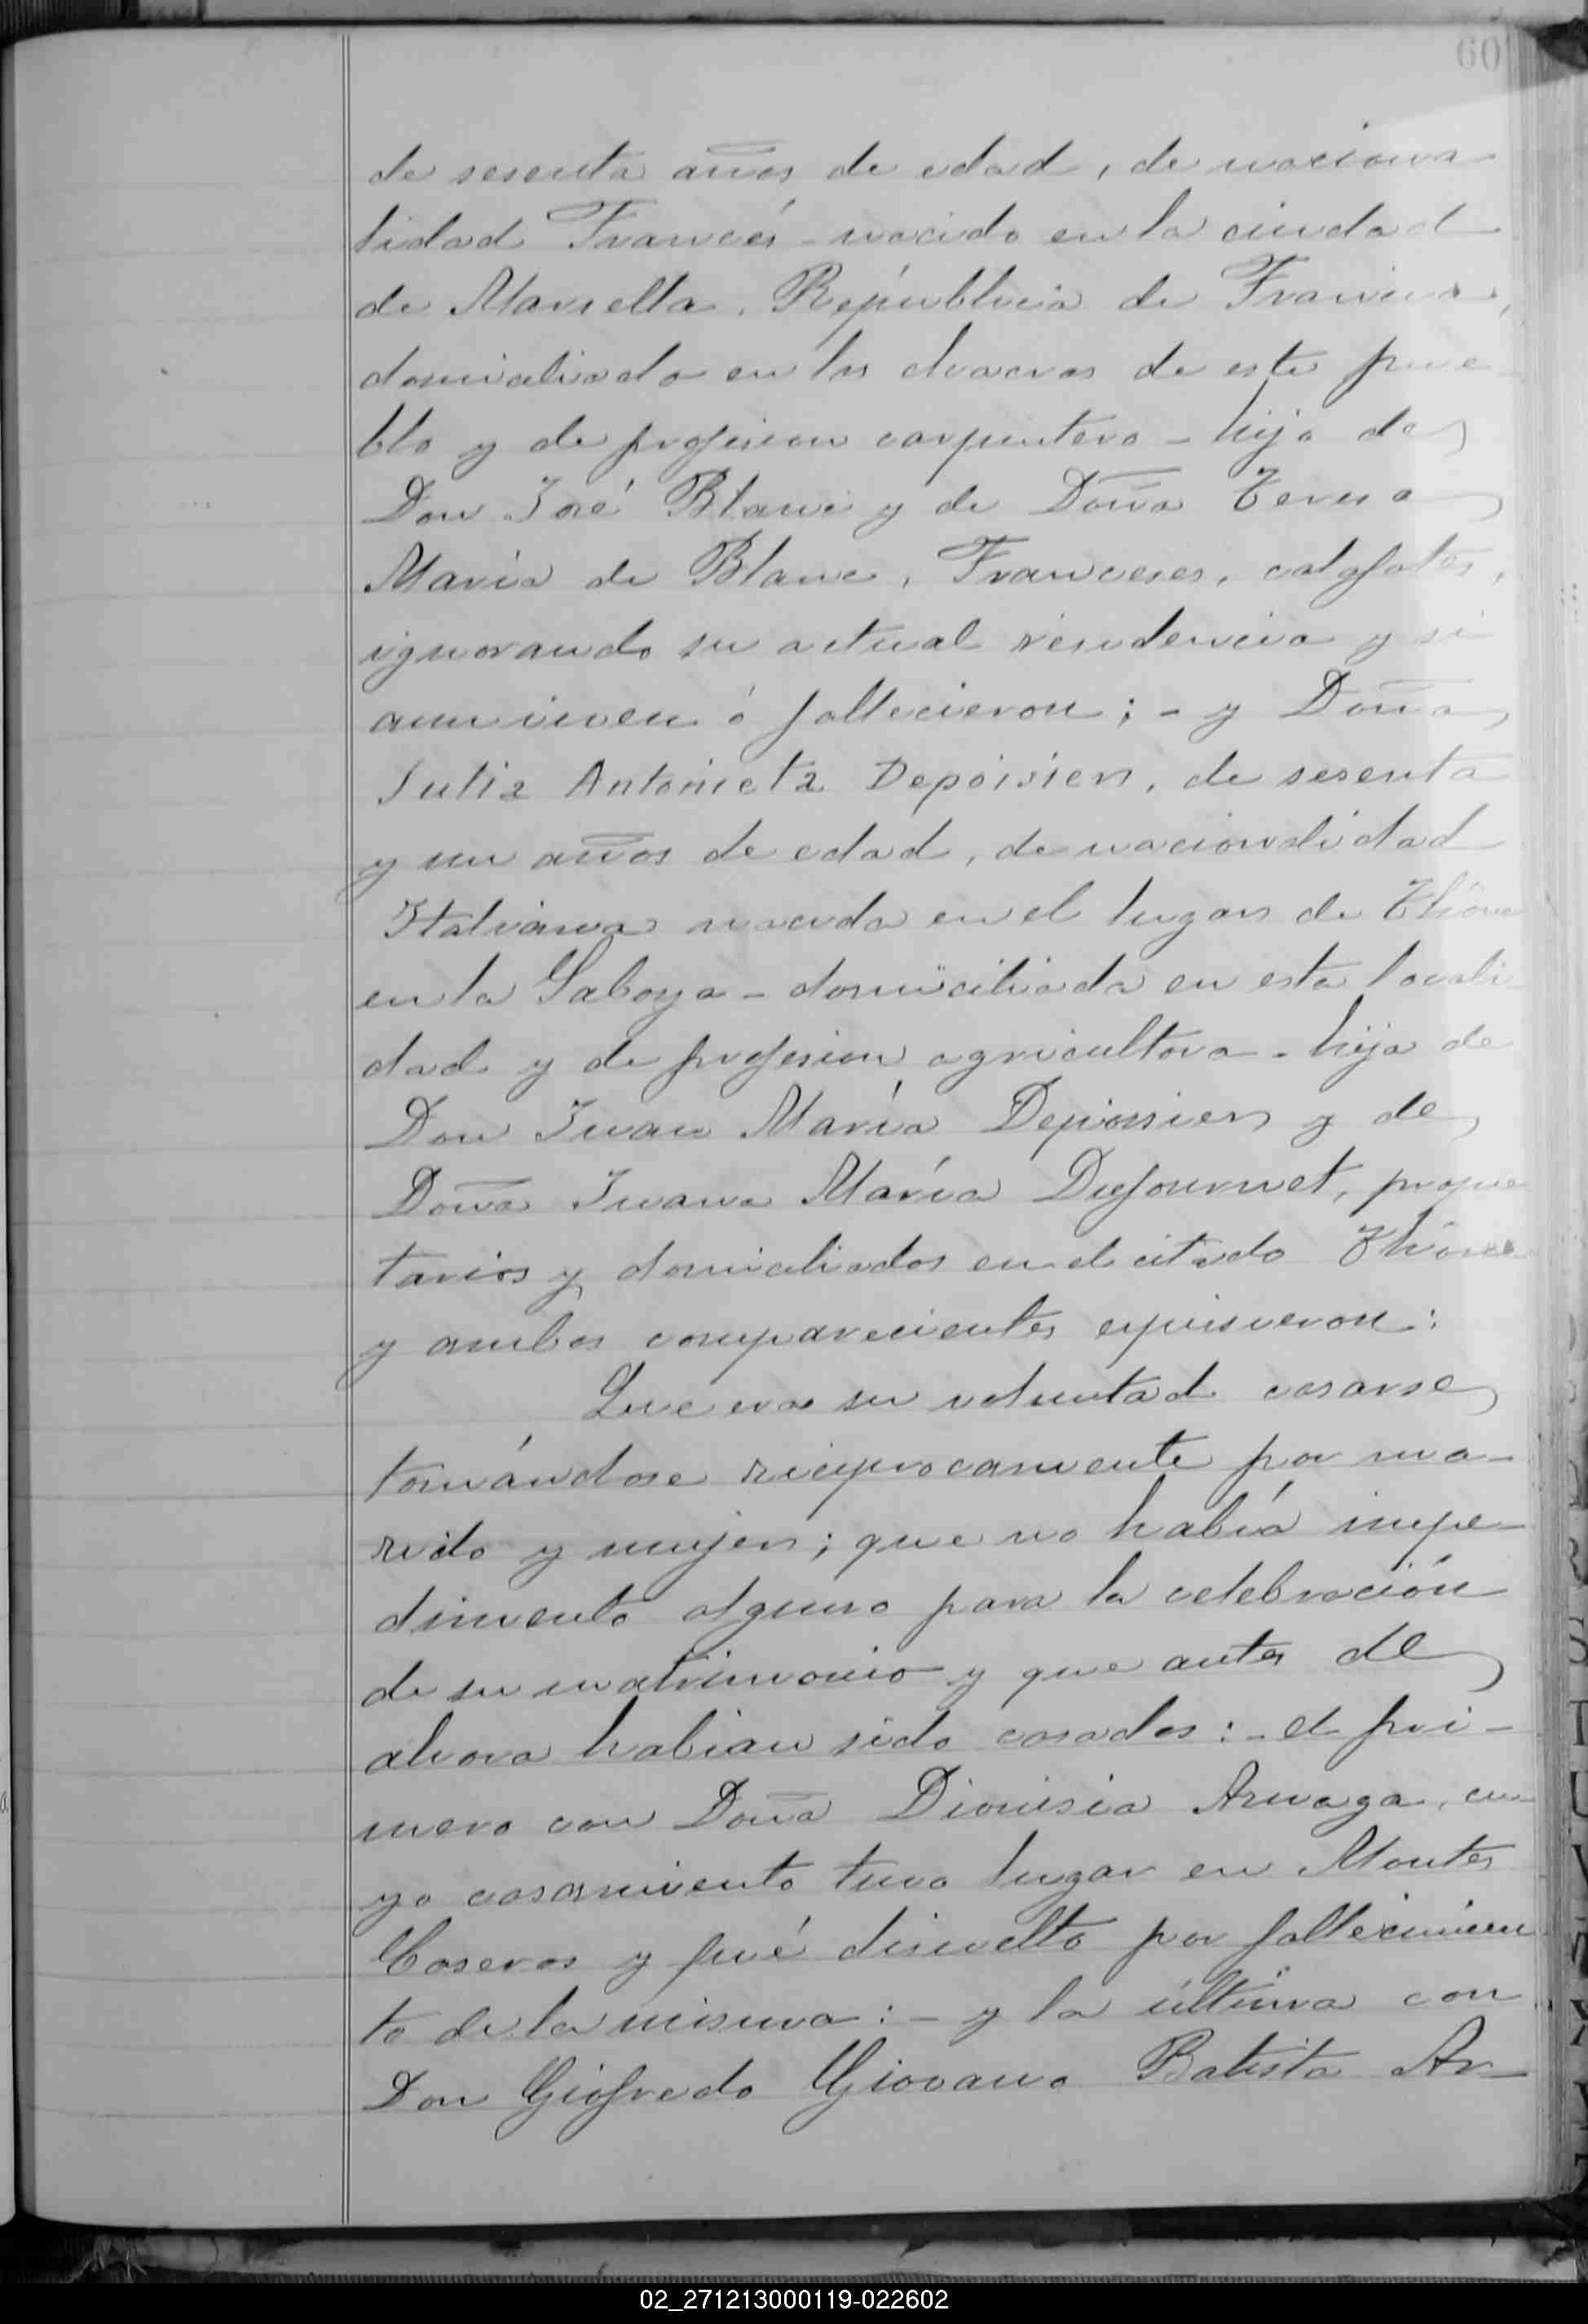 60
de sesenta años de edad, de naciona
lidad Francés - nacido en la ciudad
de Marsella, República de Francia,
domiciliado en las chacras de este pue-
blo y de profesion carpintero - hijo de
Don José Blanc y de Doña Teresa
María de Blanc, Franceses, calafates,
ignorando su actual residencia y si
aun viven ó fallecieron; - y Doña
Julia Antonieta Depoisier, de sesenta
y un años de edad, de nacionalidad
Italiana nacida en el lugar de Thône
en la Saboya - domiciliada en esta locali
dad y de profesion agricultora - hija de
Don Juan María Depoisier y de
Doña Juana María Dufournet, propie
tarios y domiciliados en el citado Thône
y ambos comparecientes expusieron:
Que era su voluntad casarse
tomándose reciprocamente por ma-
rido y mujer; que no había impe-
dimento alguno para la celebración
de su matrimonio y que antes de
ahora habian sido casados: - el pri-
mero con Doña Dionisia Arzaga, cu
yo casamiento tuvo lugar en Montes
Caseros y fué disuelto por fallecimien
to de la misma: - y la última con
Don Giofredo Giovano Batista Ar-
02_271213000119-022602